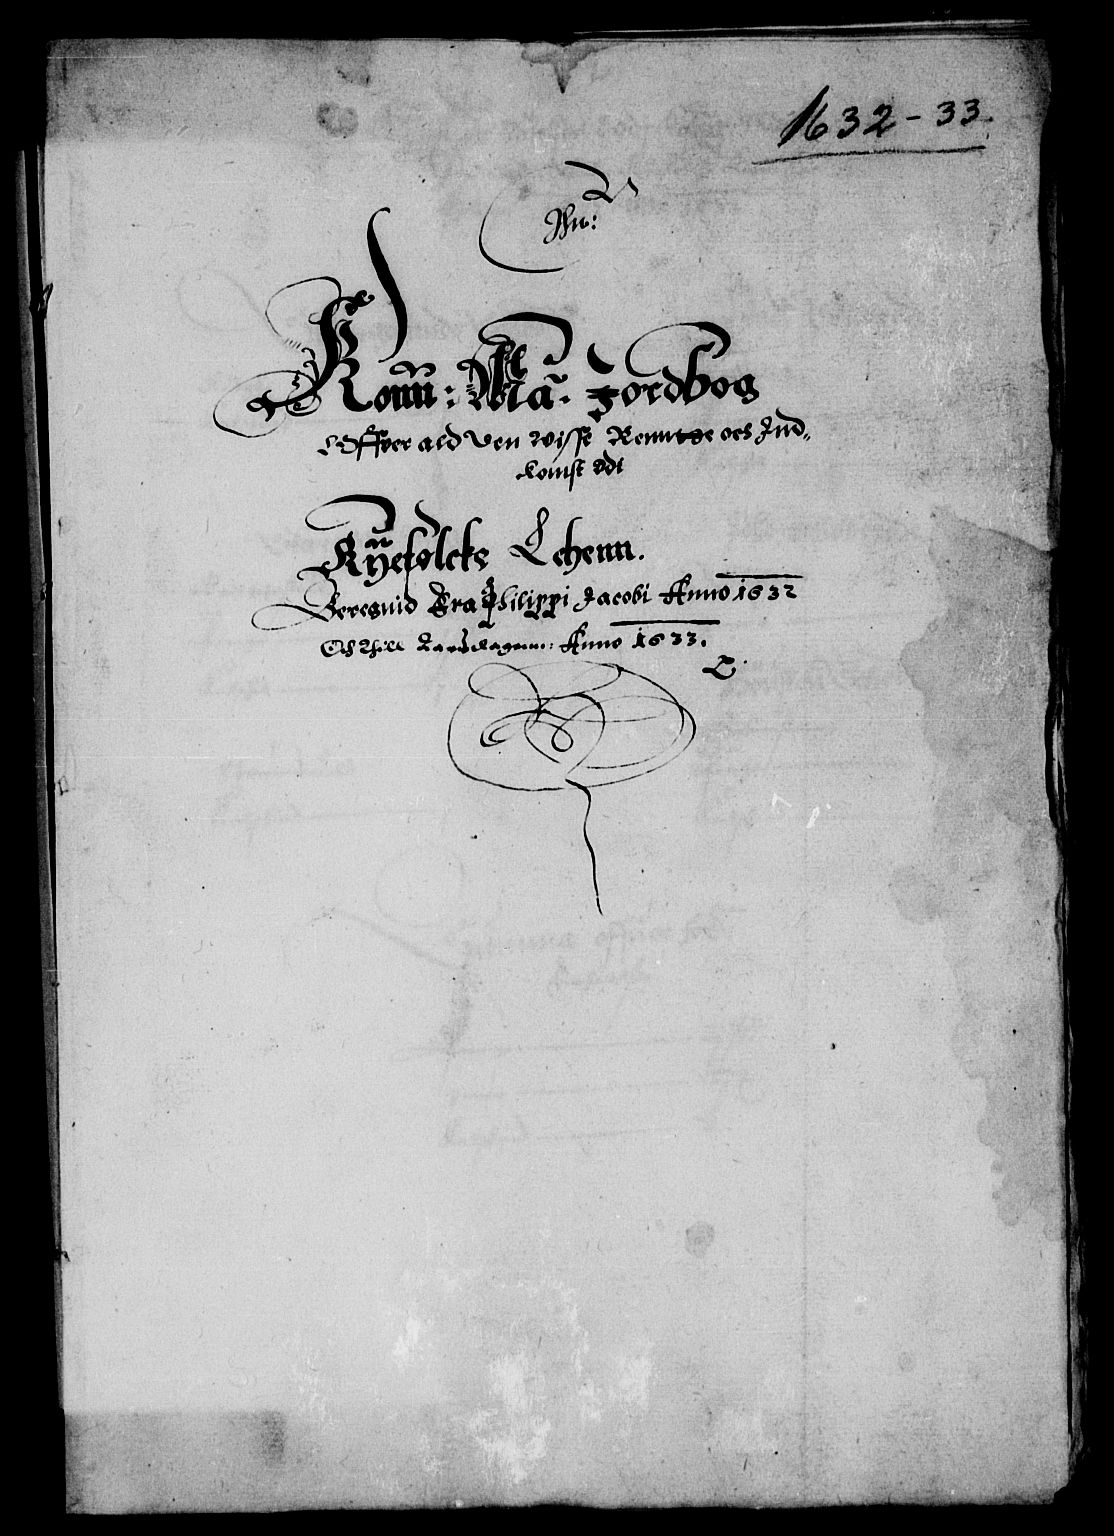 1632-33.
Konn: Ma: Jordbog
Offuer ald den wisse Renntge och Ind„
komst udi
Ryefølcke Lehenn.
Beregnid Fra Philippi Jacobi Anno 1632
Och Thill Aarsdagenn: Anno 1633.